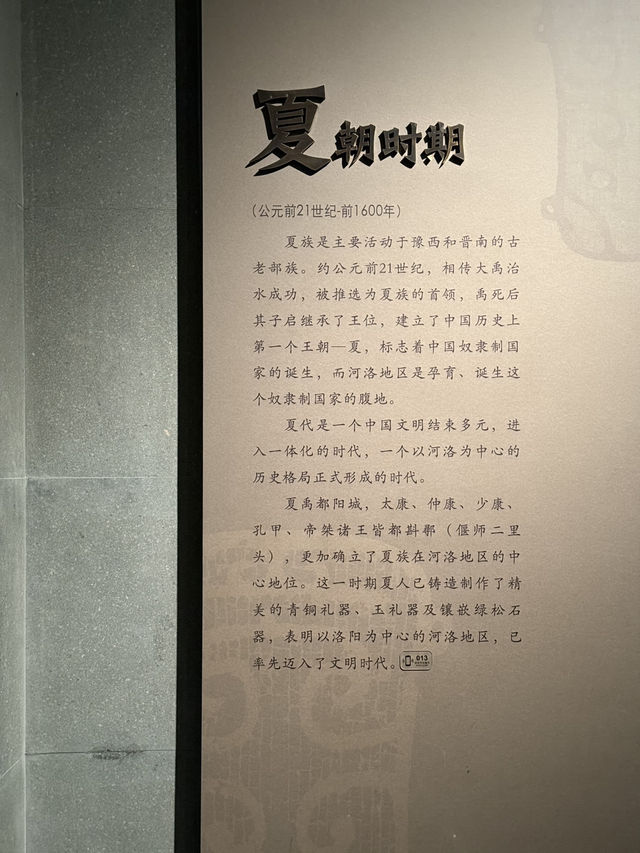 夏朝时期
（公元前21世纪-前1600年）
夏族是主要活动于豫西和晋南的古
老部族。约公元前21世纪，相传大禹治
水成功，被推选为夏族的首领，禹死后
其子启继承了王位，建立了中国历史上
第一个王朝—夏，标志着中国奴隶制国
家的诞生，而河洛地区是孕育、诞生这
个奴隶制国家的腹地。
夏代是一个中国文明结束多元，进
入一体化的时代，一个以河洛为中心的
历史格局正式形成的时代。
夏禹都阳城，太康、仲康、少康、
孔甲、帝桀诸王皆都斟鄩（偃师二里
头），更加确立了夏族在河洛地区的中
心地位。这一时期夏人已铸造制作了精
美的青铜礼器、玉礼器及镶嵌绿松石
器，表明以洛阳为中心的河洛地区，已
率先迈入了文明时代。013